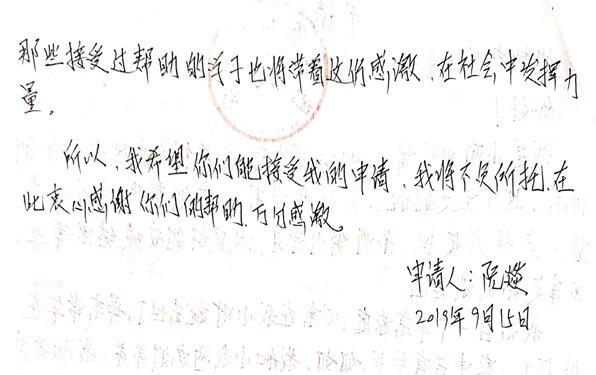 那些接受过帮助的学子也将带着这份感激,在社会中发挥力
量。
所以,我希望你们能接受我的申请,我将不负所托,在
此衷心感谢你们的帮助,万分感激。
申请人:阮
2019年9月15日